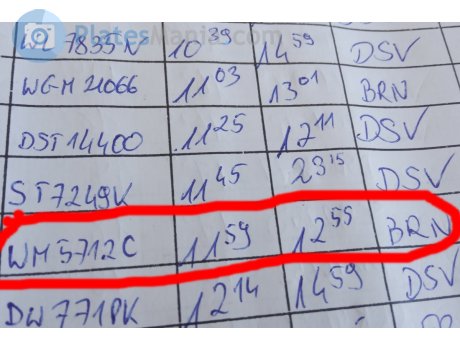 PlatesMania.com
WL 7835N 10 39 14 59 DSV
WGM 21066 11 03 13 01 BRN
DST 14400 11 25 12 11 DSV
ST7249K 11 45 23 15 DSV
WM 5712C 11 59 12 55 BRN
DW771PK 12 14 14 59 DSV